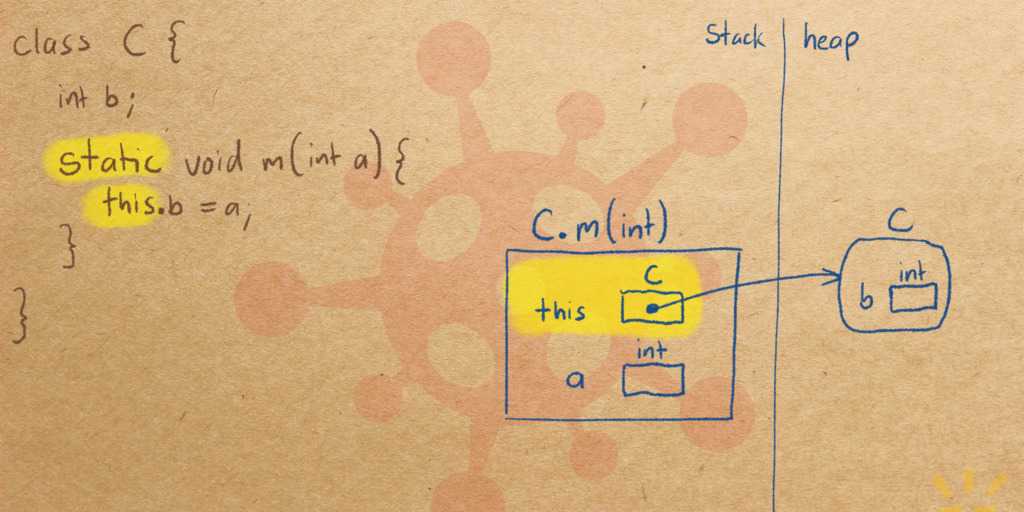 class C {
int b;
static void m(int a) {
this.b = a;
}
}
Stack | heap
C.m(int)
C
this
int
a
C
int
b